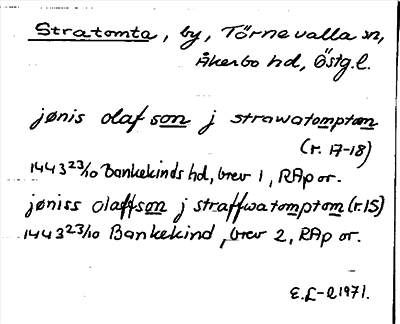 Stratomta, by, Törnevalla sn,
Åkerbo hd, Östg.l.
jønis olafson j strawatomptom
(r. 17-18)
1443 23/10 Bankekinds hd, brev 1, RAp or.
jøniss olaffson j straffwatomptom (r. 15)
1443 23/10 Bankekind, brev 2, RAp or.
E.L-d 1971.